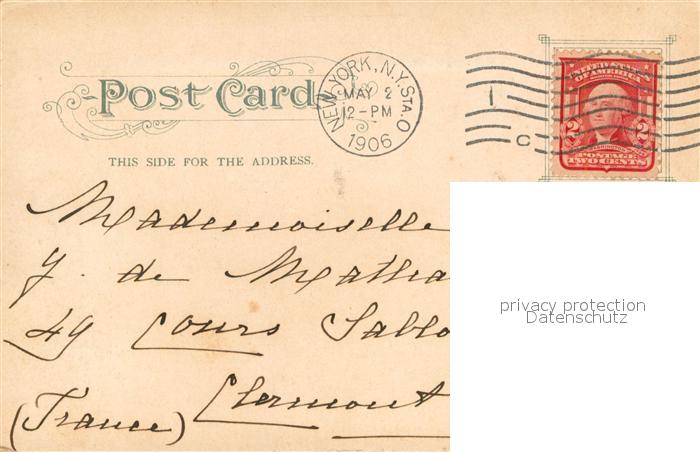 Post Card
NEW YORK, N.Y. STA. O
MAY 2
12-PM
1906
1
C
UNITED STATES
OF AMERICA
2 2
WASHINGTON
POSTAGE
TWO CENTS
THIS SIDE FOR THE ADDRESS.
Mademoiselle
Y. de Matha
49 Cours Sablo
Clermont
(France)
privacy protection
Datenschutz